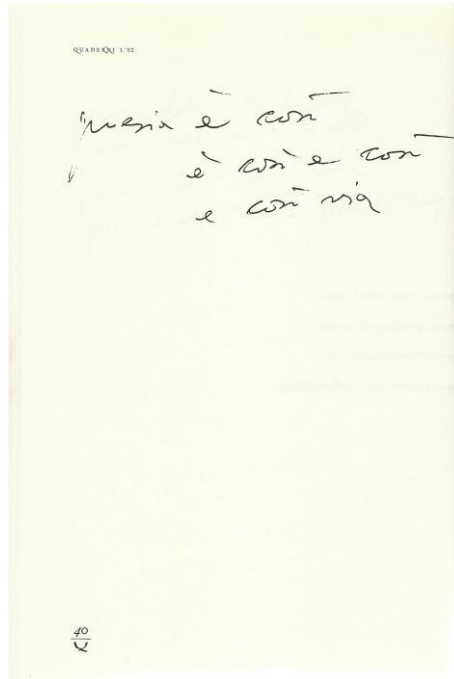 QUADERNI 1.'92
poesia è così
è così e così
e così via
40
Q